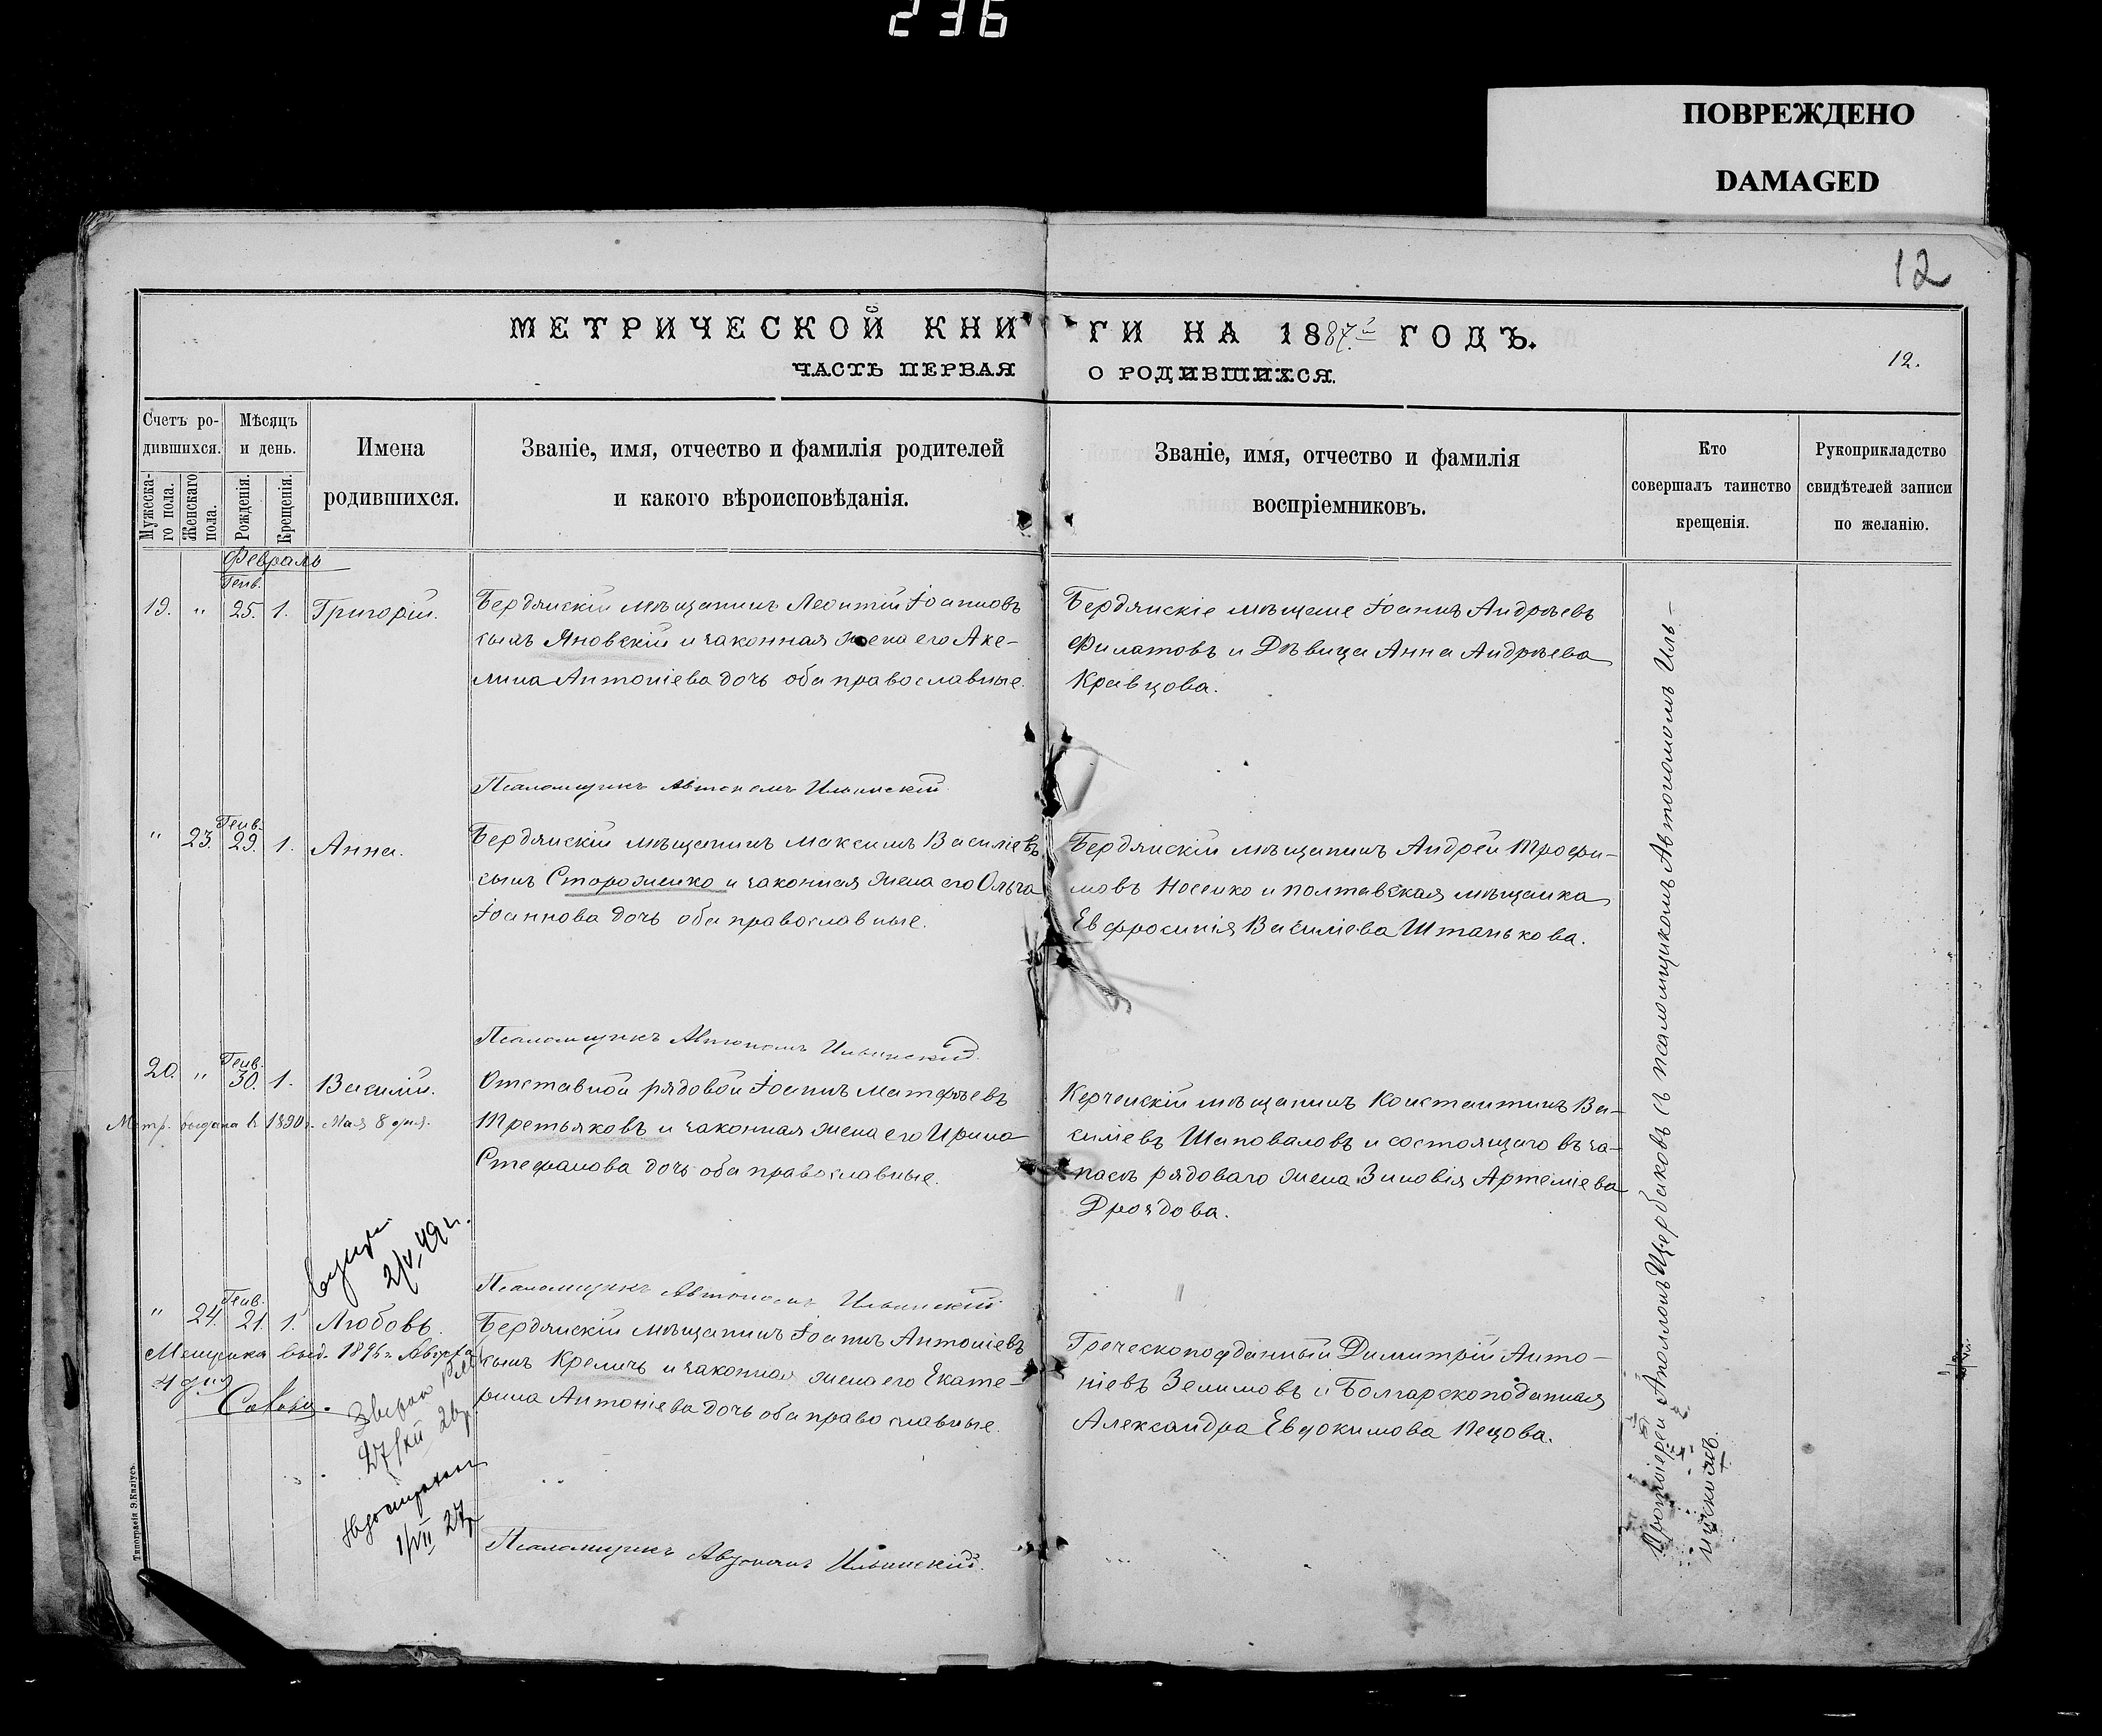 236
ПОВРЕЖДЕНО
DAMAGED
12
МЕТРИЧЕСКОЙ КНИГИ НА 1887й ГОДЪ.
ЧАСТЬ ПЕРВАЯ О РОДИВШИХСЯ.
12.
Счетъ ро-
дившихся.
Мужеска-
го пола.
Женскаго
пола.
Мѣсяцъ
и день.
Рожденія.
Крещенія.
Имена
родившихся.
Званіе, имя, отчество и фамилія родителей
и какого вѣроисповѣданія.
Званіе, имя, отчество и фамилія
воспріемниковъ.
Кто
совершалъ таинство
крещенія.
Рукоприкладство
свидѣтелей записи
по желанію.
Февраль
Генв.
19. " 25. 1. Григорій.
Бердянскій мѣщанинъ Леонтій Іоанновъ
сынъ Яновскій и законная жена его Аке-
лина Антоніева дочь оба православные.
Бердянскіе мѣщане Іоаннъ Андреевъ
Филатовъ и Дѣвица Анна Андреева
Кравцова.
Псаломщикъ Автономъ Ильинскій
Генв.
" 23. 29. 1. Анна.
Бердянскій мѣщанинъ Максимъ Василіевъ
сынъ Стороженко и законная жена его Ольга
Іоаннова дочь оба православные.
Бердянскій мѣщанинъ Андрей Трофи-
мовъ Носенко и полтавская мѣщанка
Евфросинія Василіева Штанькова.
Псаломщикъ Автономъ Ильинскій
Генв.
20. " 30. 1. Василій.
Метр. выдана в 1890 г. Мая 8 дня.
Отставной рядовой Іоаннъ Матфѣевъ
Третьяковъ и законная жена его Ирина
Стефанова дочь оба православные.
Керченскій мѣщанинъ Константинъ Ва-
силіевъ Шаповаловъ и состоящаго въ за-
пасѣ рядоваго жена Зиновія Артеміева
Дроздова.
2/V 49 г.
Псаломщикъ Автономъ Ильинскій
Генв.
" 24. 21. 1. Любовь.
выд. 1896 г. Августа
4 дня
27/XII 26 г.
1/VII 27 г.
Бердянскій мѣщанинъ Іоаннъ Антоніевъ
сынъ Кремичъ и законная жена его Екате-
рина Антоніева дочь оба православные.
Греческоподданный Димитрій Анто-
ніевъ Зелимовъ и Болгарскоподданная
Александра Евдокимова Пецова.
Псаломщикъ Автономъ Ильинскій.
Протоіерей Аполлонъ Щербаковъ съ псаломщикомъ Автономомъ Иль-
инскимъ.
Типографія Э. Килиусъ